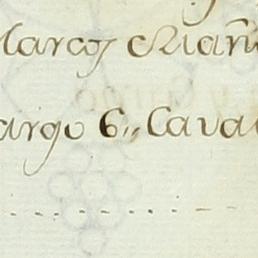 Marcos Riañ
argo 6,, Cava